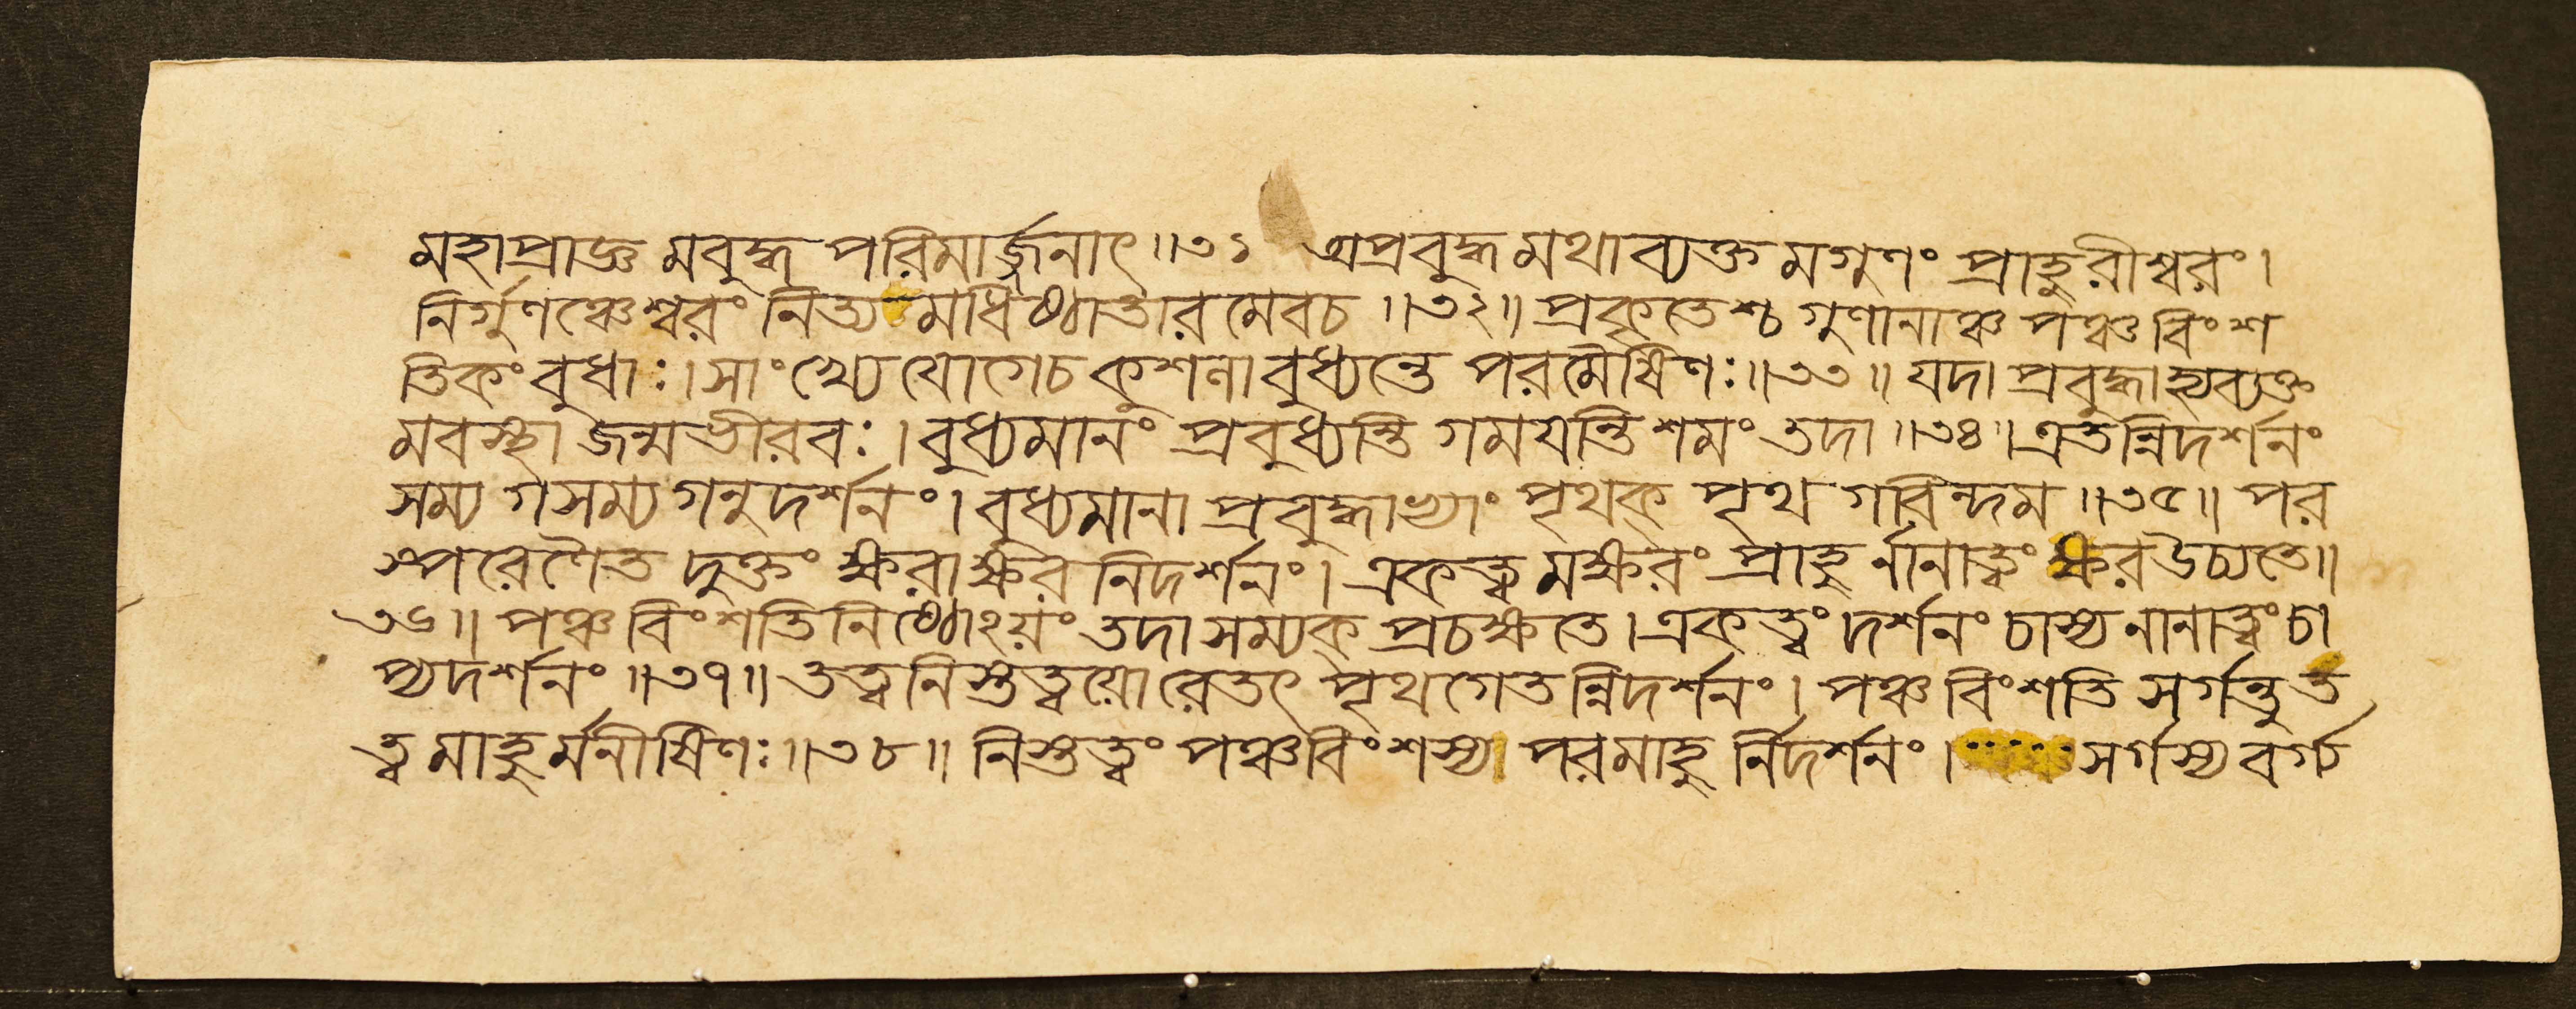 মহাপ্রাজ্ঞ মবুদ্ধ পরিমার্জ্জনাৎ ॥৩১ অপ্রবুদ্ধ মথাব্যক্ত মগুণং প্রাহুরীশ্বরং।
নির্গুণঞ্চেশ্বরং নিত্য মধিষ্ঠাতার মেবচ ॥৩২॥ প্রকৃতেশ্চ গুণানাঞ্চ পঞ্চবিংশ
তিকং বুধাঃ। সাংখ্যে যোগেচ কুশলা বুধ্যন্তে পরমৈষিণঃ॥৩৩॥ যদা প্রবুদ্ধাহ্যব্যক্ত
মবস্থা জন্মভীরবঃ। বুধ্যমানং প্রবুধ্যন্তি গময়ন্তি শমং তদা ॥৩৪॥ এতন্নিদর্শনং
সম্য গসম্য গনুদর্শনং। বুধ্যমানা প্রবুদ্ধাভ্যাং পৃথক্ পৃথ গরিন্দম ॥৩৫॥ পর
স্পরেণৈত দুক্তং ক্ষরাক্ষর নিদর্শনং। একত্ত্ব মক্ষরং প্রাহু র্নানাত্ত্বং ক্ষরউচ্যতে॥
৩৬॥ পঞ্চবিংশতিনিষ্ঠোঽয়ং তদা সম্যক্ প্রচক্ষতে। একত্ত্বং দর্শনং চাস্য নানাত্ত্বং চা
প্যদর্শনং ॥৩৭॥ তত্ত্বনিস্তত্ত্বয়োরেতৎ পৃথগেতন্নিদর্শনং। পঞ্চবিংশতি সর্গন্তু ত
ত্ত্ব মাহু র্মনীষিণঃ॥৩৮॥ নিস্তত্ত্বং পঞ্চবিংশস্য পরমাহু র্নিদর্শনং। সর্গস্য বর্গ্য